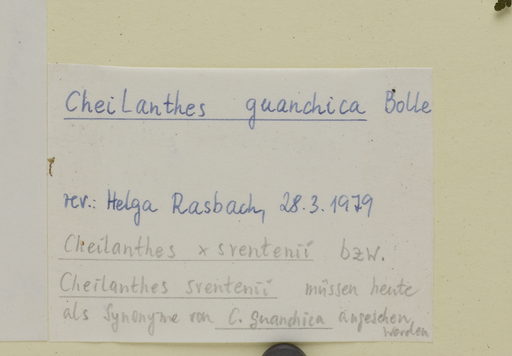 Cheilanthes guanchica Bolle
rev.: Helga Rasbach, 28.3.1979
Cheilanthes x sventenii bzw.
Cheilanthes sventenii müssen heute
als Synonyme von C. guanchica angesehen
werden